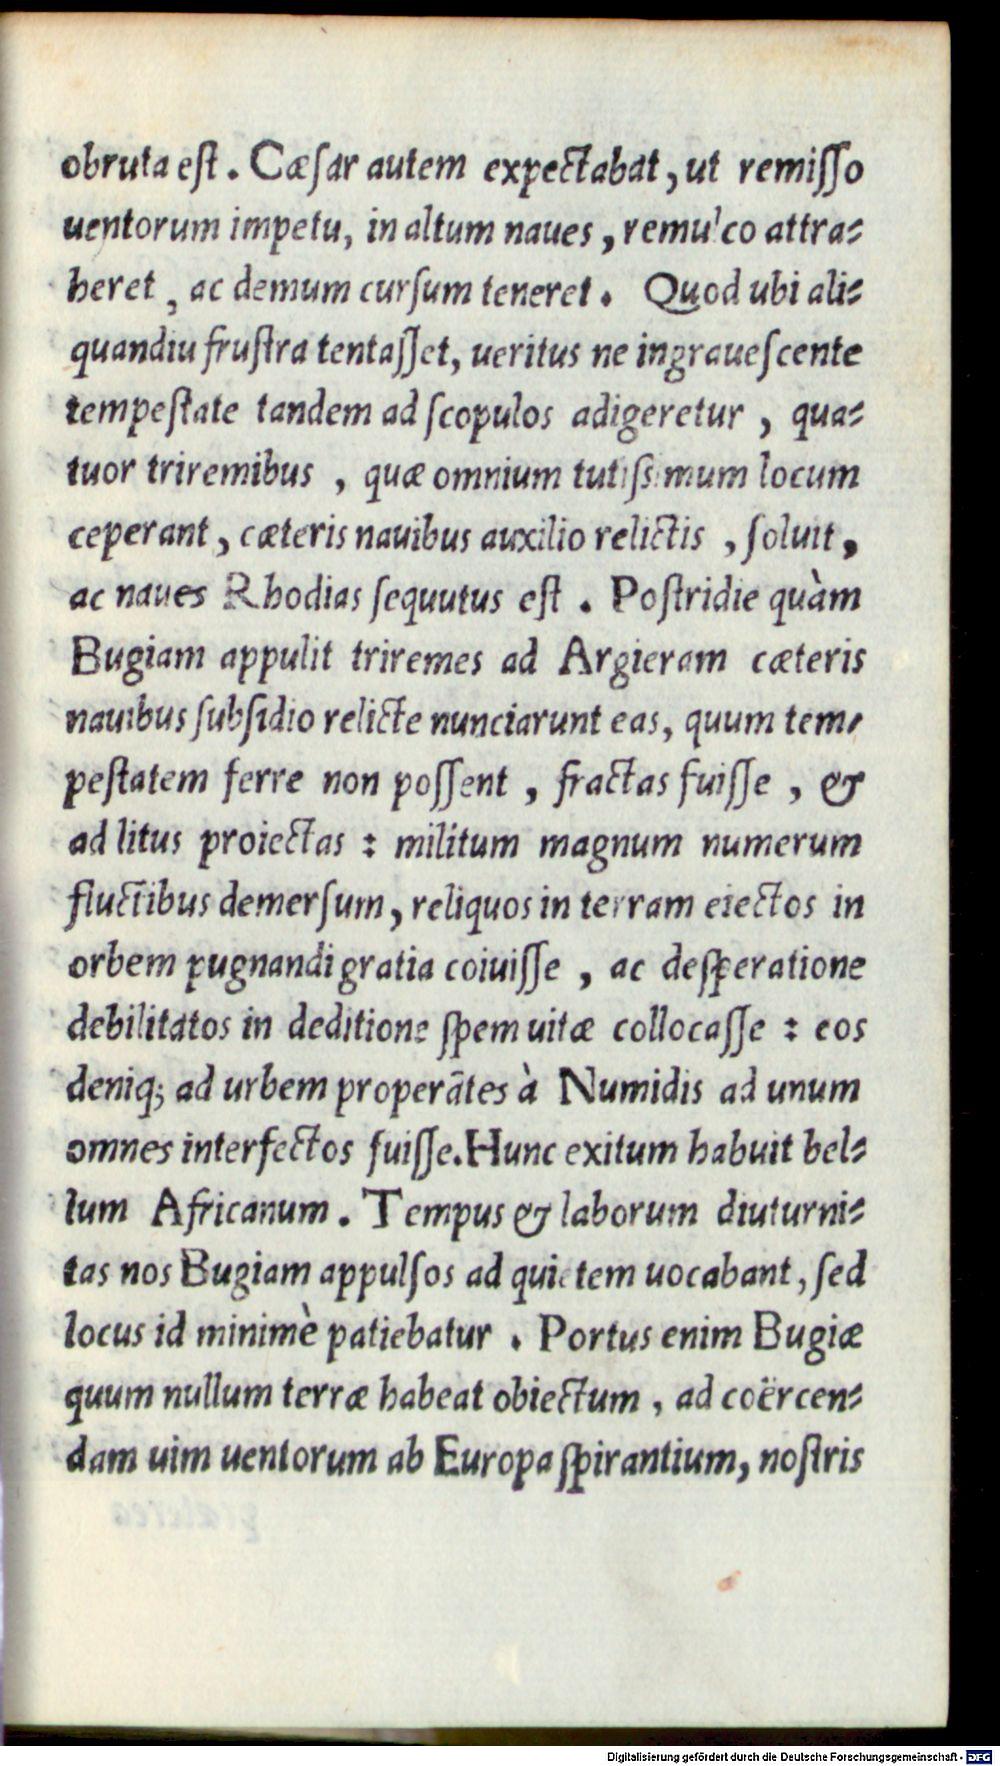 obruta eſt. Cæſar autem expectabat, ut remiſſo
uentorum impetu, in altum naues, remulco attra-
heret, ac demum curſum teneret. Quod ubi ali-
quandiu fruſtra tentaſſet, ueritus ne ingraueſcente
tempeſtate tandem ad ſcopulos adigeretur, qua-
tuor triremibus, quæ omnium tutiſsimum locum
ceperant, cæteris nauibus auxilio relictis, ſoluit,
ac naues Rhodias ſequutus eſt. Poſtridie quàm
Bugiam appulit triremes ad Argieram cæteris
nauibus ſubſidio relicte nunciarunt eas, quum tem-
peſtatem ferre non poſſent, fractas fuiſſe, &
ad litus proiectas: militum magnum numerum
fluctibus demerſum, reliquos in terram eiectos in
orbem pugnandi gratia coiuiſſe, ac deſperatione
debilitatos in deditione ſpem uitæ collocaſſe: eos
deniq; ad urbem properātes à Numidis ad unum
omnes interfectos fuiſſe. Hunc exitum habuit bel-
lum Africanum. Tempus & laborum diuturni-
tas nos Bugiam appulſos ad quietem uocabant, ſed
locus id minimè patiebatur. Portus enim Bugiæ
quum nullum terræ habeat obiectum, ad coërcen-
dam uim uentorum ab Europa ſpirantium, noſtris
Digitalisierung gefördert durch die Deutsche Forschungsgemeinschaft - DFG